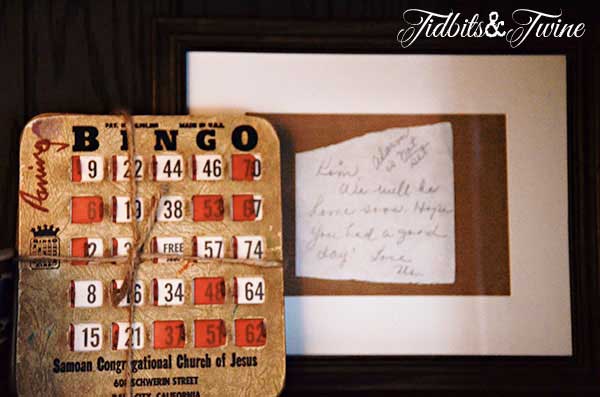 Tidbits & Twine
PAT. MADE IN U.S.A.
BINGO
9 22 44 46 70
6 19 38 53 67
2 FREE 57 74
8 16 34 48 64
15 21 37 51 62
Samoan Congregational Church of Jesus
SCHWERIN STREET
CITY, CALIFORNIA
Alarm
is not
set
Kim,
We will be
home soon. Hope
you had a good
day! Love
Us